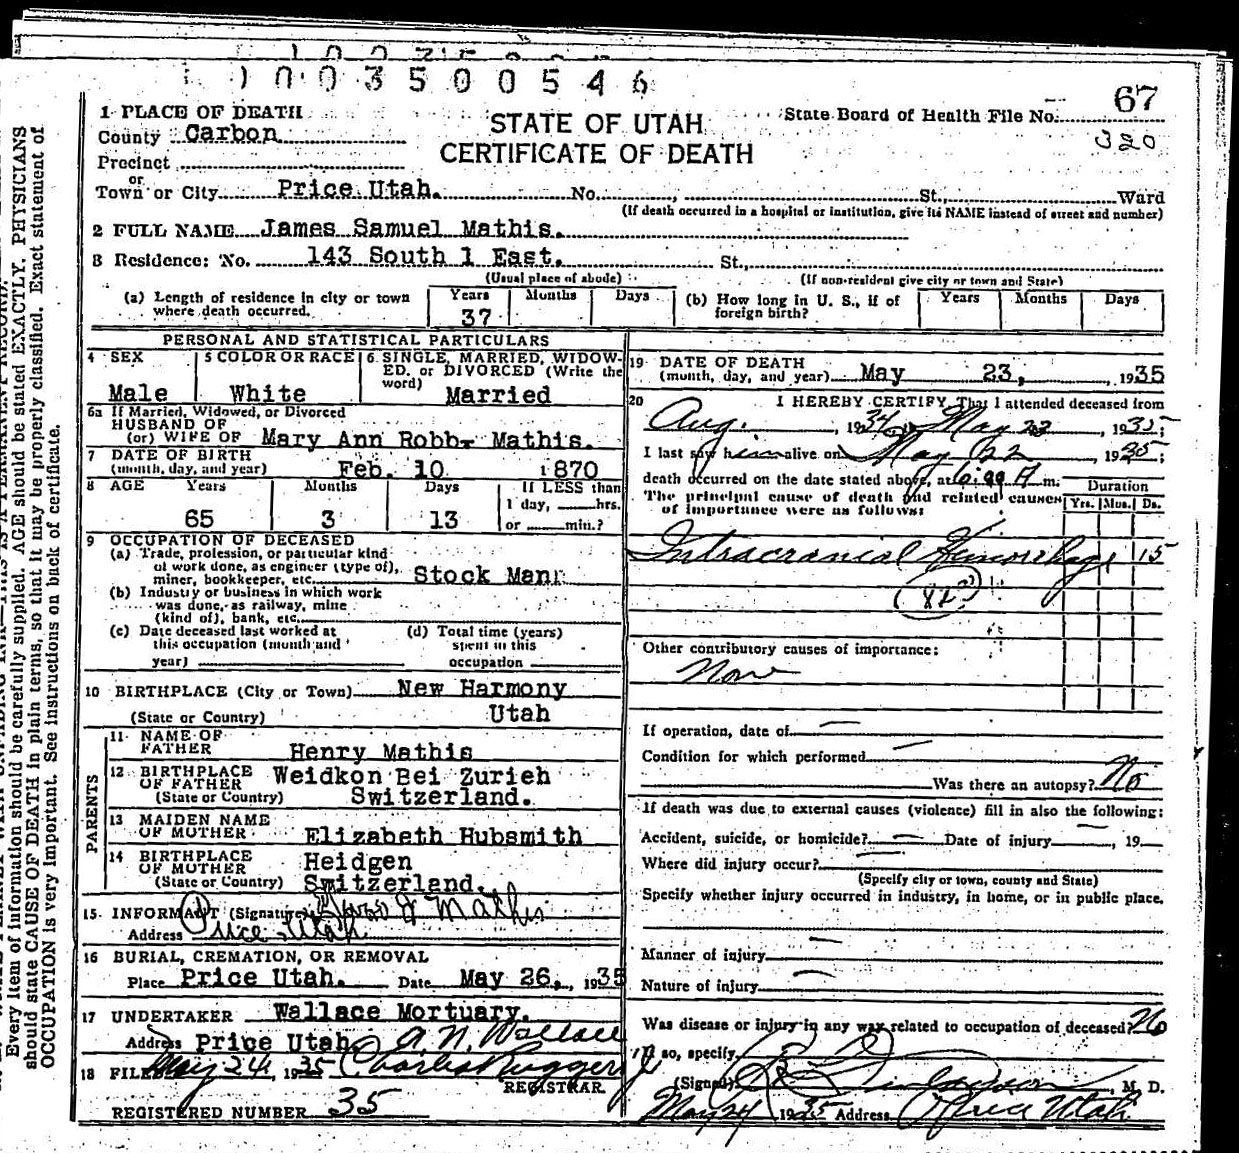 1003500546
67
320
1 PLACE OF DEATH
County Carbon
Precinct
or
Town or City Price Utah. No. , St., Ward
STATE OF UTAH
CERTIFICATE OF DEATH
State Board of Health File No.
(If death occurred in a hospital or institution, give its NAME instead of street and number)
2 FULL NAME James Samuel Mathis.
3 Residence: No. 143 South 1 East. St.,
(Usual place of abode) (If non-resident give city or town and State)
(a) Length of residence in city or town where death occurred. Years 37 Months Days
(b) How long in U. S., if of foreign birth? Years Months Days
PERSONAL AND STATISTICAL PARTICULARS
4 SEX Male
5 COLOR OR RACE White
6 SINGLE, MARRIED, WIDOWED, or DIVORCED (Write the word) Married
6a If Married, Widowed, or Divorced
HUSBAND OF
(or) WIFE OF Mary Ann Robb- Mathis.
7 DATE OF BIRTH
(month, day, and year) Feb. 10 1870
8 AGE Years 65 Months 3 Days 13
If LESS than
1 day, hrs.
or min.?
9 OCCUPATION OF DECEASED
(a) Trade, profession, or particular kind
of work done, as engineer (type of),
miner, bookkeeper, etc. Stock Man
(b) Industry or business in which work
was done, as railway, mine
(kind of), bank, etc.
(c) Date deceased last worked at
this occupation (month and
year)
(d) Total time (years)
spent in this
occupation
10 BIRTHPLACE (City or Town) New Harmony
(State or Country) Utah
PARENTS
11 NAME OF
FATHER Henry Mathis
12 BIRTHPLACE
OF FATHER Weidkon Bei Zurieh
(State or Country) Switzerland.
13 MAIDEN NAME
OF MOTHER Elizabeth Hubsmith
14 BIRTHPLACE
OF MOTHER Heidgen
(State or Country) Switzerland.
15 INFORMANT (Signature) Mathis
Address Price Utah
16 BURIAL, CREMATION, OR REMOVAL
Place Price Utah. Date May 26, , 1935
17 UNDERTAKER Wallace Mortuary.
Address Price Utah A. N. Wallace
18 FILED May 24, 1935 Charles Ruggeri Jr
REGISTRAR
REGISTERED NUMBER 35
19 DATE OF DEATH
(month, day, and year) May 23, , 1935
20 I HEREBY CERTIFY, That I attended deceased from
Aug. , 1934, to May 23 , 1935;
I last saw him alive on May 22 , 1935;
death occurred on the date stated above, at 6:00 A m.
The principal cause of death and related causes
of importance were as follows:
Duration
Yrs. Mos. Ds.
Intracranial Hemorrhage 15
82
Other contributory causes of importance:
None
If operation, date of —
Condition for which performed —
Was there an autopsy? No
If death was due to external causes (violence) fill in also the following:
Accident, suicide, or homicide? — Date of injury — , 19
Where did injury occur? —
(Specify city or town, county and State)
Specify whether injury occurred in industry, in home, or in public place.
Manner of injury —
Nature of injury —
Was disease or injury in any way related to occupation of deceased? No
If so, specify
(Signed) , M. D.
May 24 1935 Address Price Utah
Every item of information should be carefully supplied. AGE should be stated EXACTLY. PHYSICIANS
should state CAUSE OF DEATH in plain terms, so that it may be properly classified. Exact statement of
OCCUPATION is very important. See instructions on back of certificate.